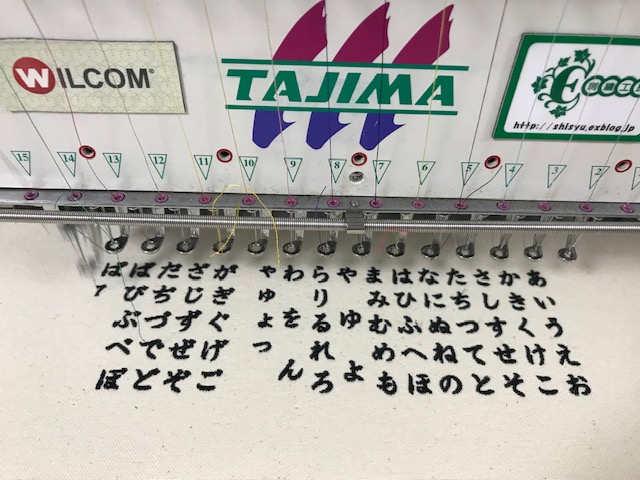 WILCOM®
TAJIMA
E
http://shisyu.exblog.jp
15 14 13 12 11 10 9 8 7 6 5 4 3 2
あいうえお
かきくけこ
さしすせそ
たちつてと
なにぬねの
はひふへほ
まみむめも
やゆよ
らりるれろ
わをん
ゃゅょっ
がぎぐげご
ざじずぜぞ
だぢづでど
ばびぶべぼ
ぱ